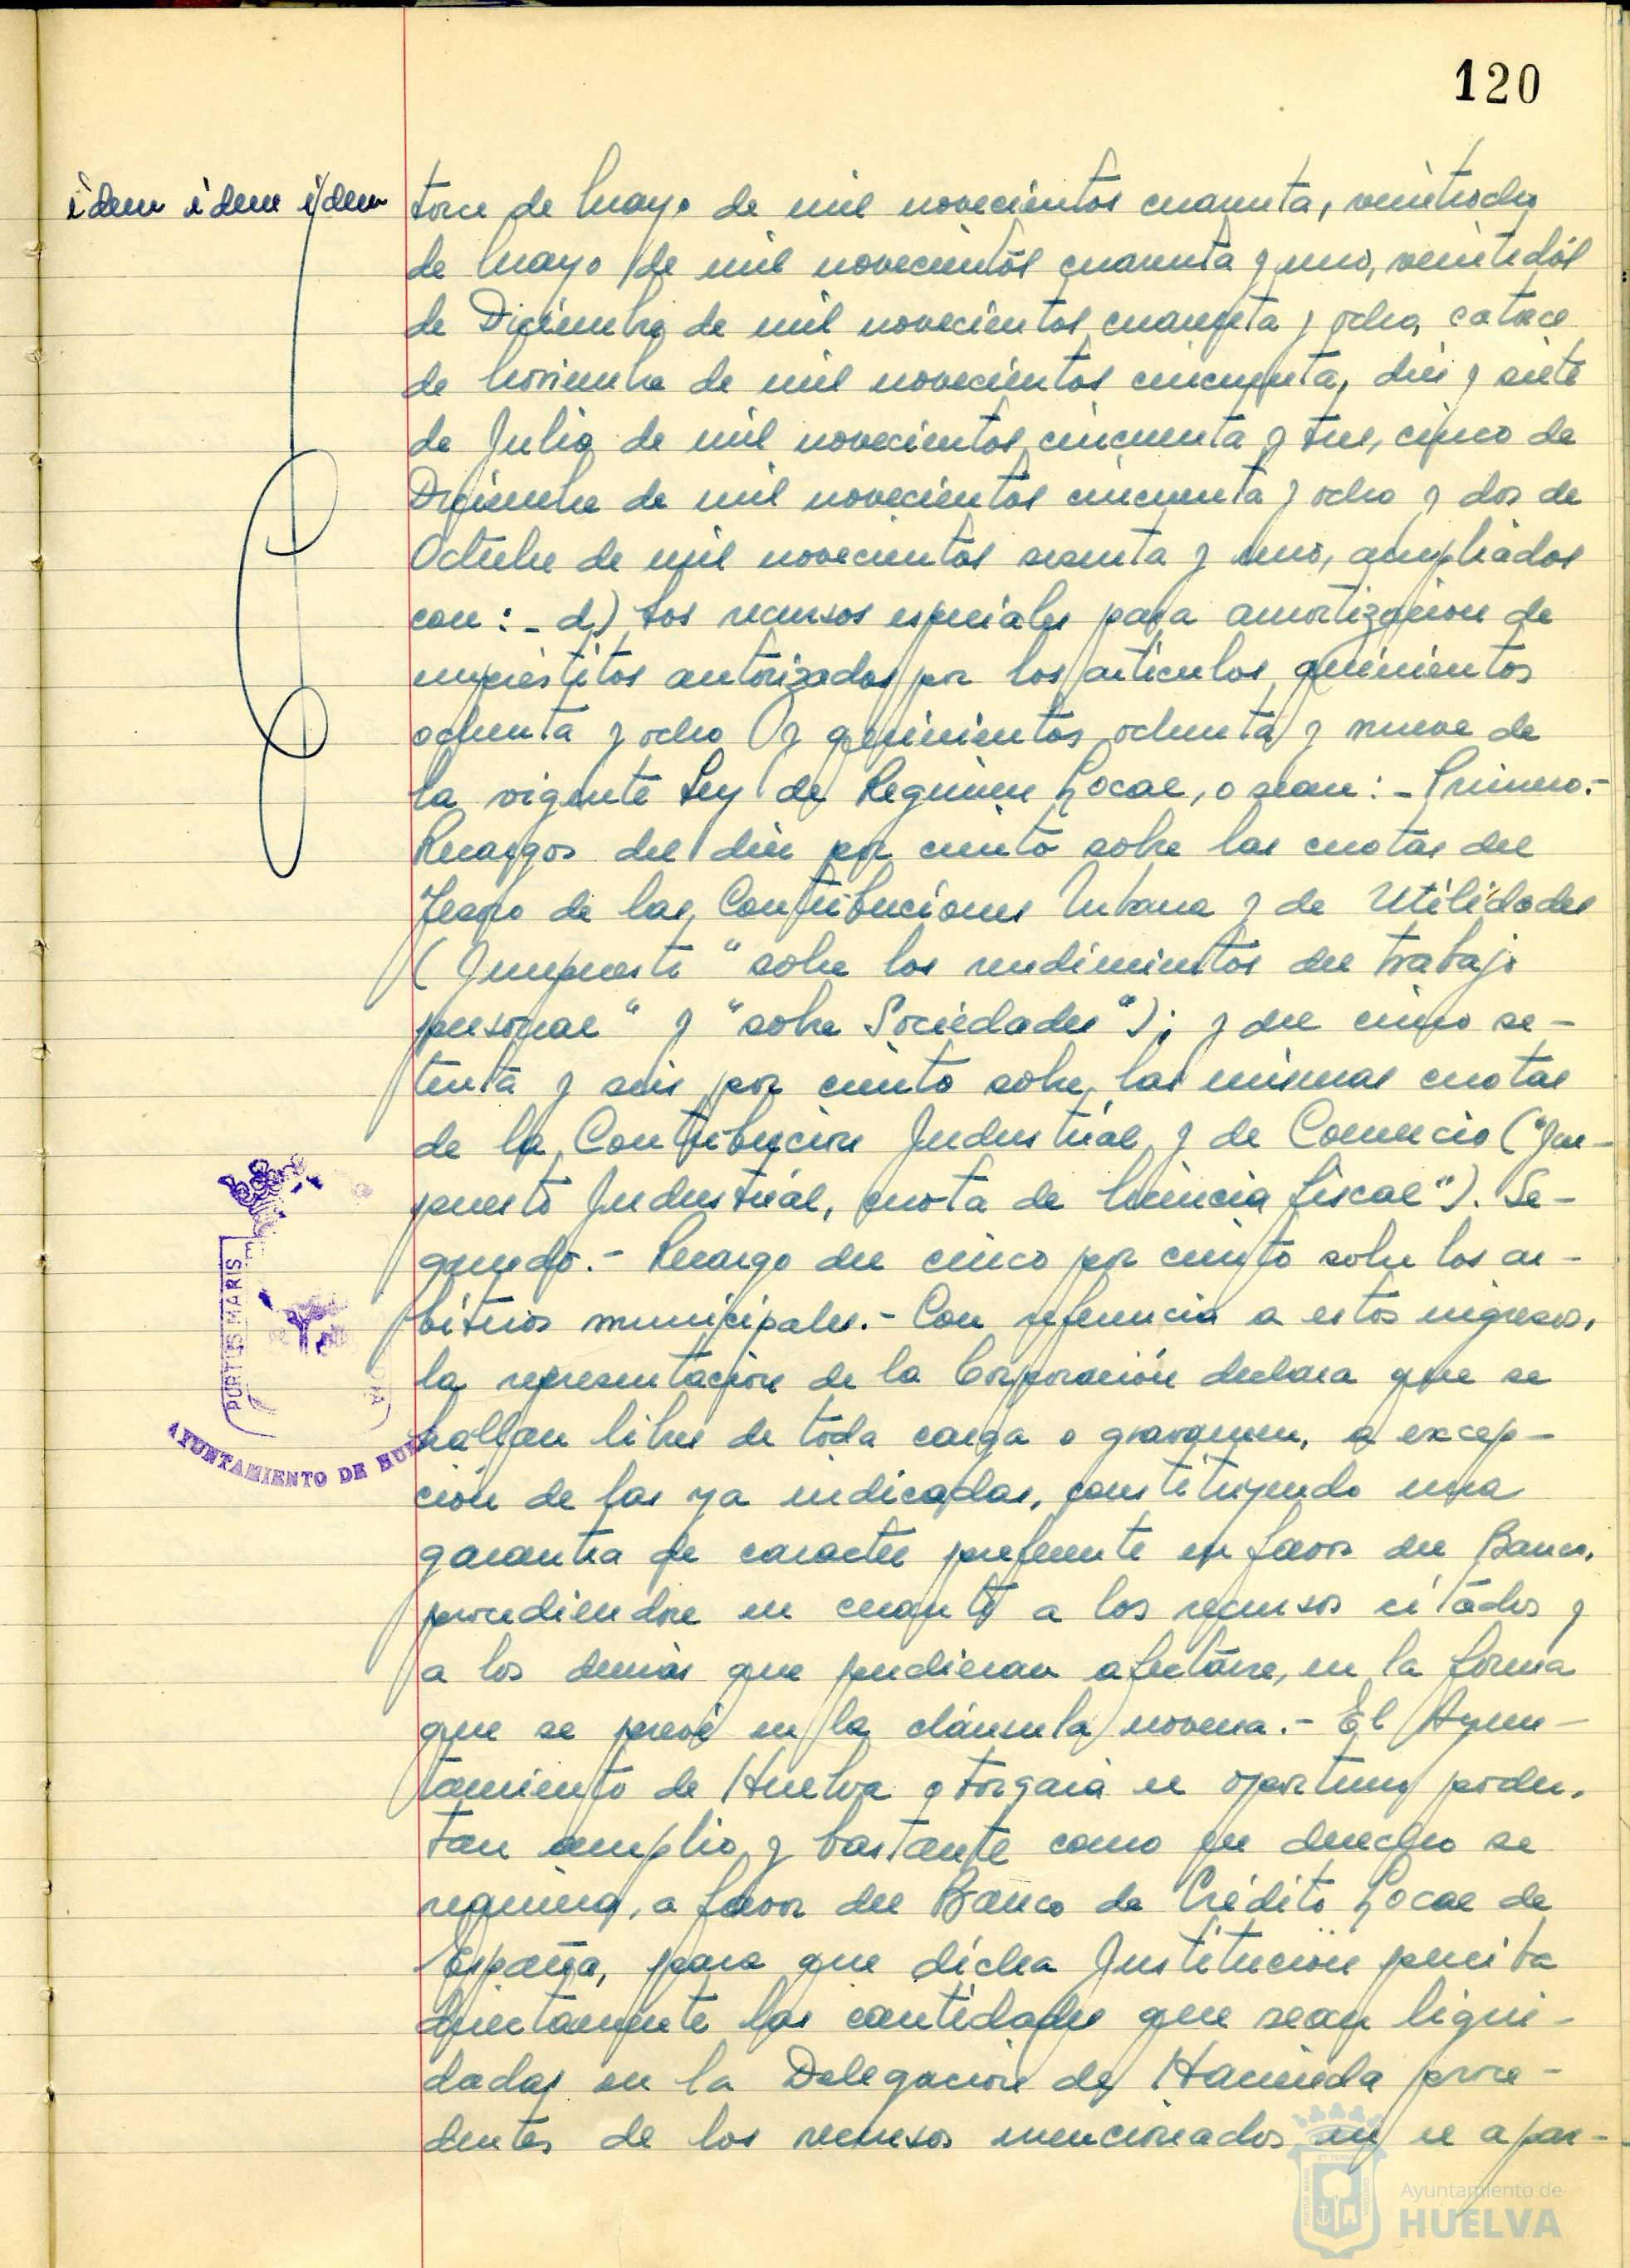 120
idem idem idem
torce de Mayo de mil novecientos cuarenta, veintiocho
de Mayo de mil novecientos cuarenta y uno, veintidós
de Diciembre de mil novecientos cuarenta y ocho, catorce
de Noviembre de mil novecientos cincuenta, diez y siete
de Julio de mil novecientos cincuenta y tres, cinco de
Diciembre de mil novecientos cincuenta y ocho y dos de
Octubre de mil novecientos sesenta y uno, ampliados
con: - d) Los recursos especiales para amortización de
empréstitos autorizados por los artículos quinientos
ochenta y ocho y quinientos ochenta y nueve de
la vigente Ley de Regimen Local, o sean: - Primero.-
Recargos del diez por ciento sobre las cuotas del
Tesoro de las Contribuciones Urbana y de Utilidades
(Impuesto "sobre los rendimientos del trabajo
personal" y "sobre Sociedades"); y del cinco se-
tenta y seis por ciento sobre las mismas cuotas
de la Contribución Industrial y de Comercio ("Im-
puesto Industrial, cuota de licencia fiscal"). Se-
gundo.- Recargo del cinco por ciento sobre los ar-
bitrios municipales.- Con referencia a estos ingresos,
la representación de la Corporación declara que se
hallan libres de toda carga o gravamen, a excep-
ción de las ya indicadas, constituyendo una
garantia de caracter preferente en favor del Banco,
procediendose en cuanto a los recursos citados y
a los demás que pudieran afectarse, en la forma
que se prevé en la cláusula novena.- El Ayun-
tamiento de Huelva otorgará el oportuno poder,
tan amplio y bastante como en derecho se
requiera, a favor del Banco de Crédito Local de
España, para que dicha Institución perciba
directamente las cantidades que sean liqui-
dadas en la Delegación de Hacienda proce-
dentes de los recursos mencionados en el apar-
PORTUS MARIS
AYUNTAMIENTO DE HUEL
Ayuntamiento de
HUELVA